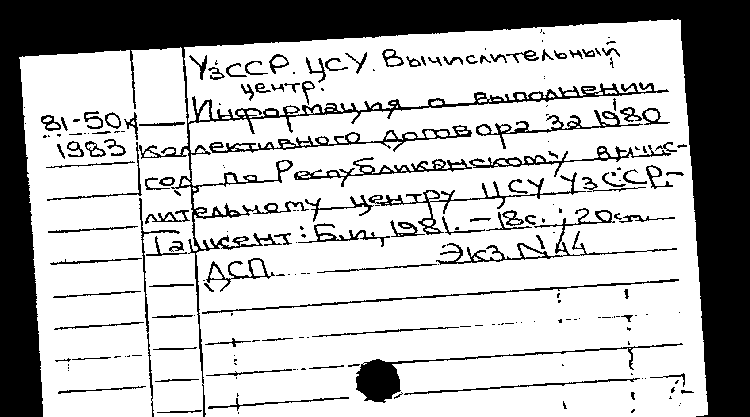 УзССР. ЦСУ. Вычислительный
центр.
81-50к Информация о выполнении
1983 коллективного договора за 1980
год по Республиканскому вычис-
лительному центру ЦСУ УзССР.-
Ташкент: Б.и., 1981. - 18с.; 20см.
ДСП. Экз. N 44